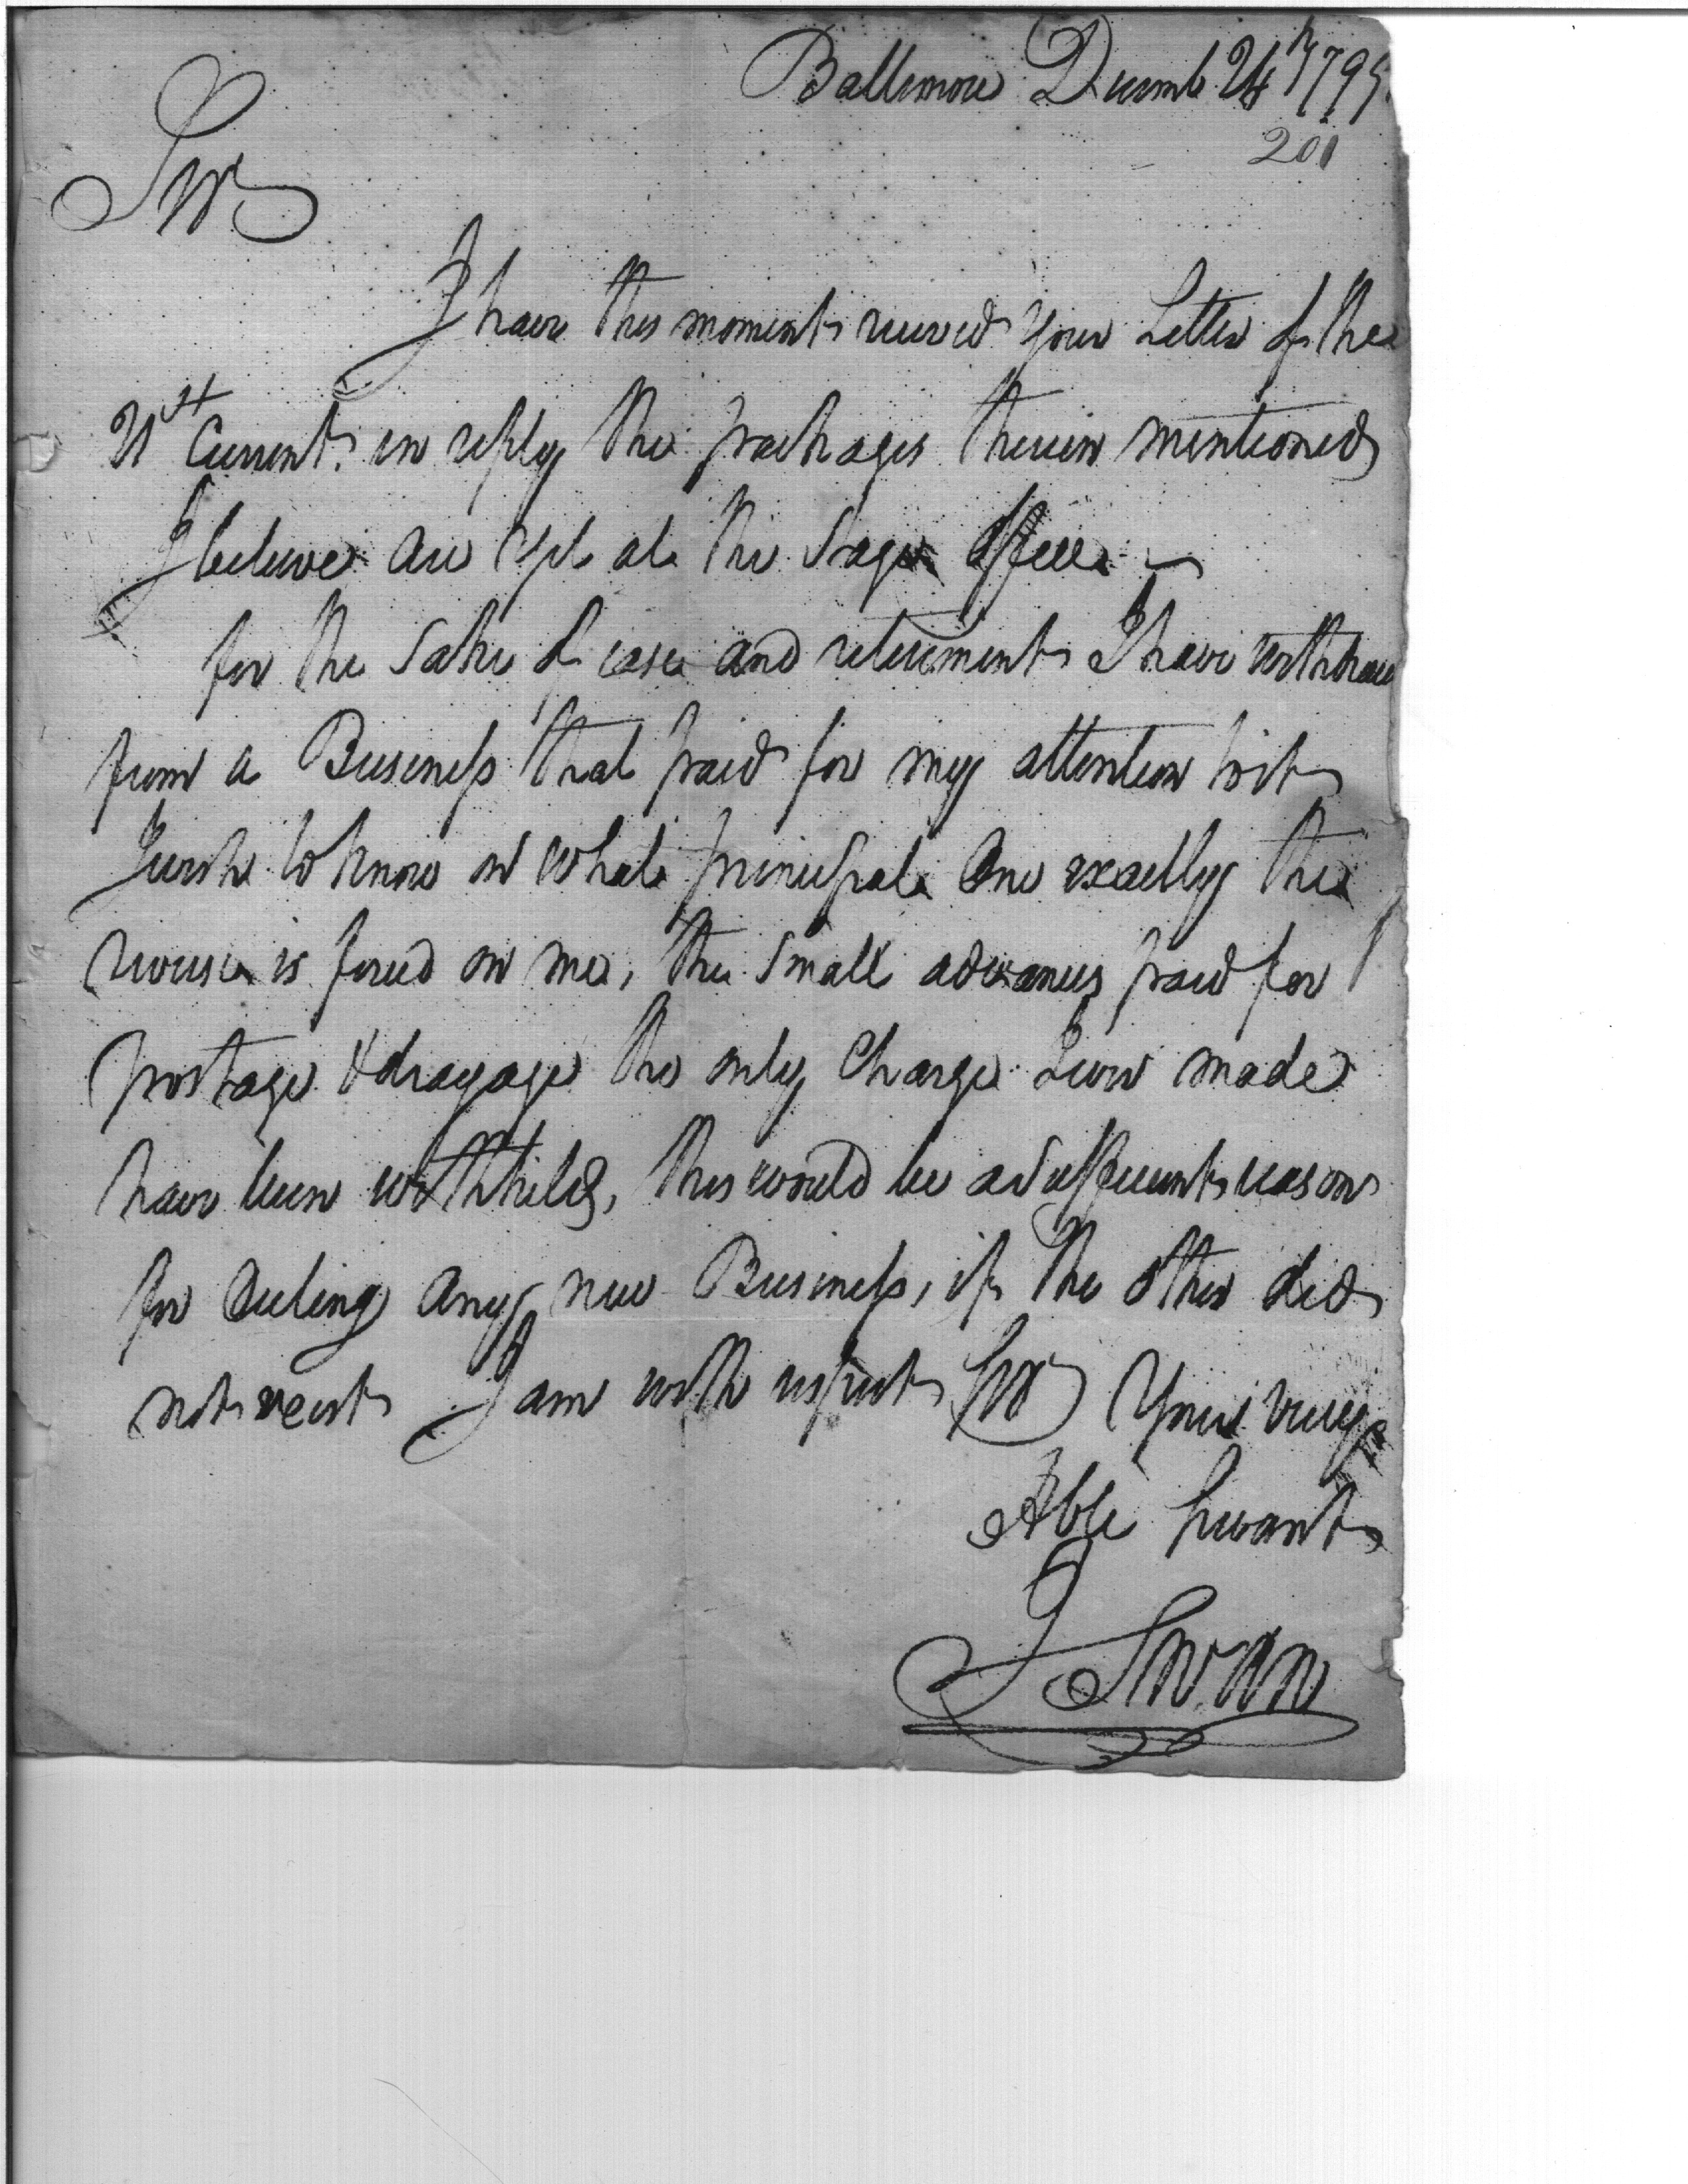 Baltimore Decemb 24th 1795
201
Sir
I have this moment received your Letter of the
21st Current. in reply the packages therein mentioned
I believe are yet at the Stage Office
for the Sake of ease and retirement I have withdraw
from a Business that paid for my attention to it
I wish to know on what principal One exactly the
reverse is forced on me, the Small advances paid for
postage & drayage the only Charge I ever made
have been withheld, this would be a sufficient reason
for declining any new Business, if the other did
not exist I am with respect Sir Your very
Hble Servant
J Swan